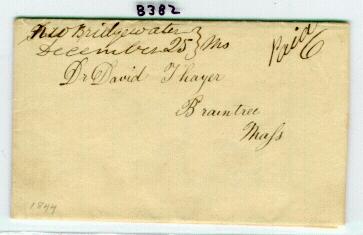 B382
No Bridgewater } Ms
December 25
Paid 6
Dr David Thayer
Braintree
Mass
1844